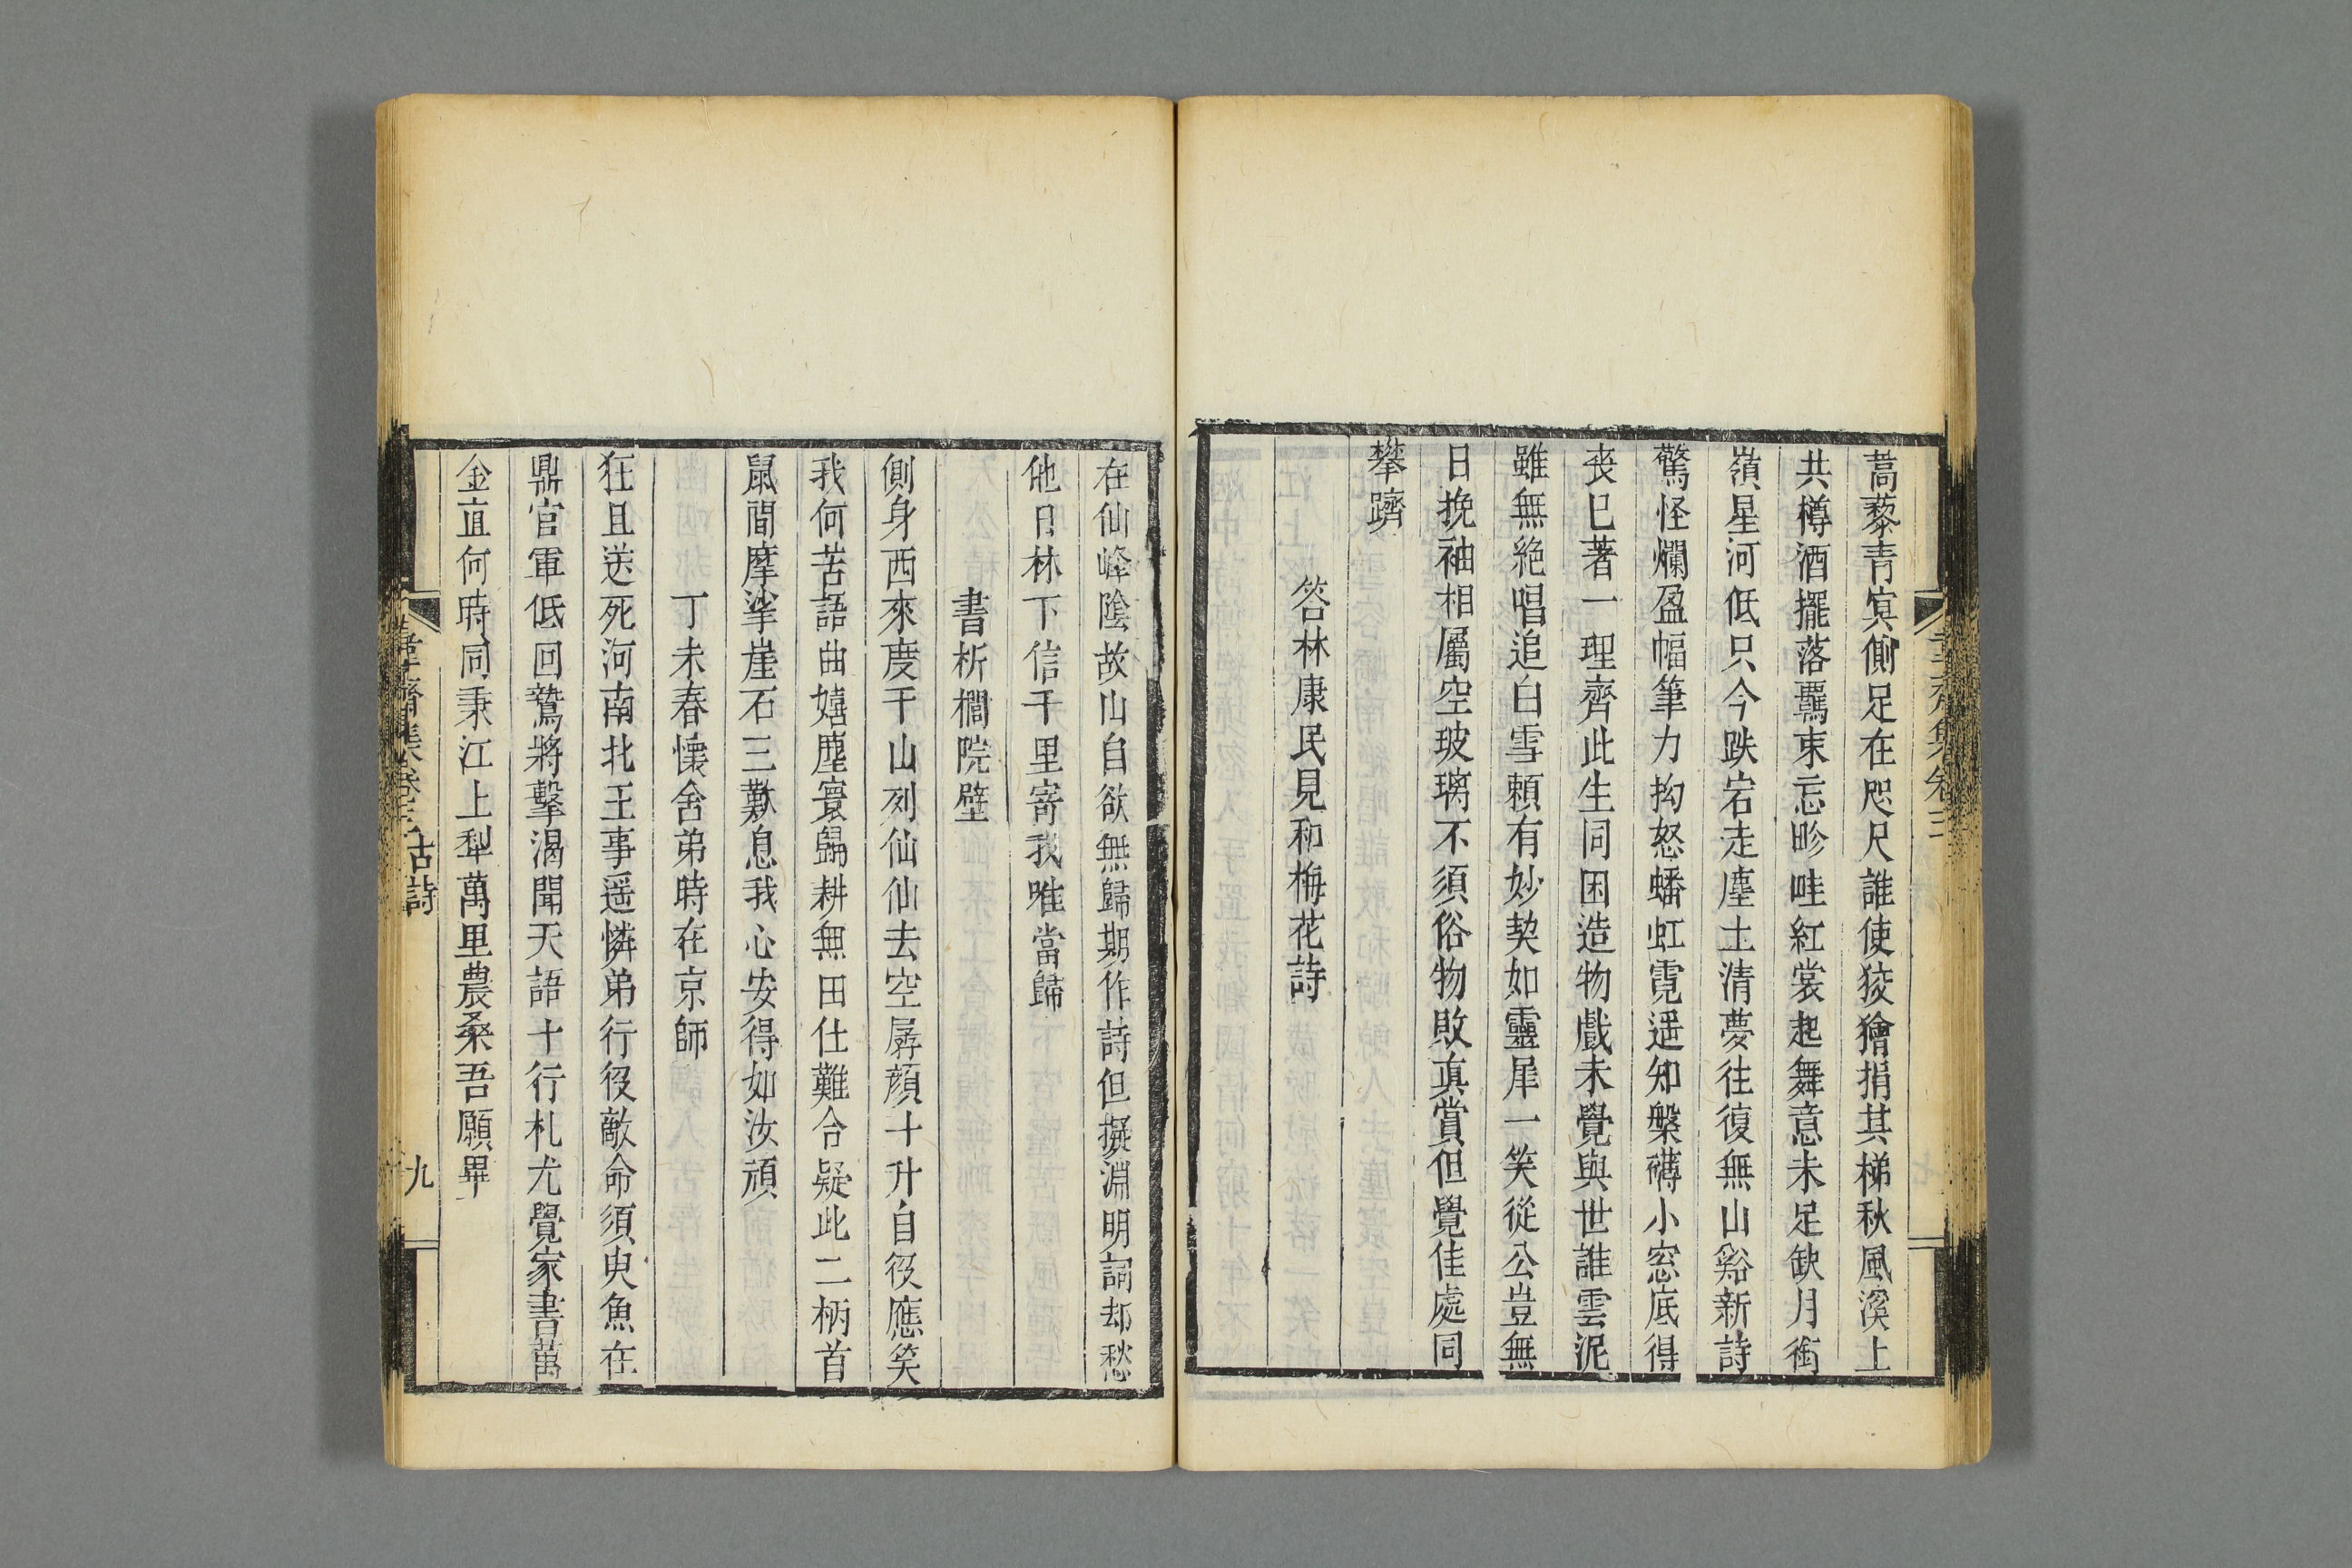 蒿藜青冥側足在咫尺誰使狡獪捐其梯秋風溪上
共樽酒擺落羈束忘畛畦紅裳起舞意未足缺月銜
嶺星河低只今跌宕走塵土清夢往復無山谿新詩
驚怪爛盈幅筆力拗怒蟠虹霓遥知槃礴小窓底得
喪已著一理齊此生同困造物戲未覺與世誰雲泥
雖無絶唱追白雪賴有妙契如靈犀一笑從公豈無
日挽袖相屬空玻璃不須俗物敗真賞但覺佳處同
攀躋
答林康民見和梅花詩
在仙峰隂故山自欲無歸期作詩但擬淵明詞却愁
他日林下信千里寄我唯當歸
書析橺院壁
側身西來度千山列仙仙去空孱顔十升自役應笑
我何苦語曲嬉塵寰歸耕無田仕難合疑此二柄首
鼠間摩挲崖石三歎息我心安得如汝頑
丁未春懷舍弟時在京師
狂且送死河南北王事遥憐弟行役敵命須臾魚在
鼎官軍低回鷙將擊渴聞天語十行札尤覺家書萬
金直何時同秉江上犁萬里農桑吾願畢
韋齋集卷三 古詩
九